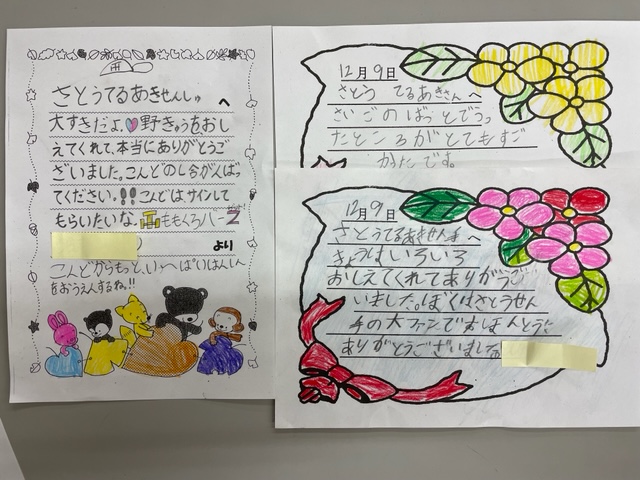 さとうてるあきせんしゅ
へ
大すきだよ。野きゅうをおし
えてくれて、本当にありがとうご
ざいました。こんどのし合がんばっ
てください。!!こんどはサインして
もらいたいな。
ももくろ
より
こんどからもっと、いっぱいはんしん
をおうえんするね!!
12月9日
さとう てるあきさん へ
さいごのばっとでうっ
たところがとてもすご
かたです。
12月9日
さとうてるあきせん手 へ
きょうはいろいろ
おしえてくれてありがとうござ
いました。ぼくはさとうせん
手の大ファンでおほんとうに
ありがとうございました。